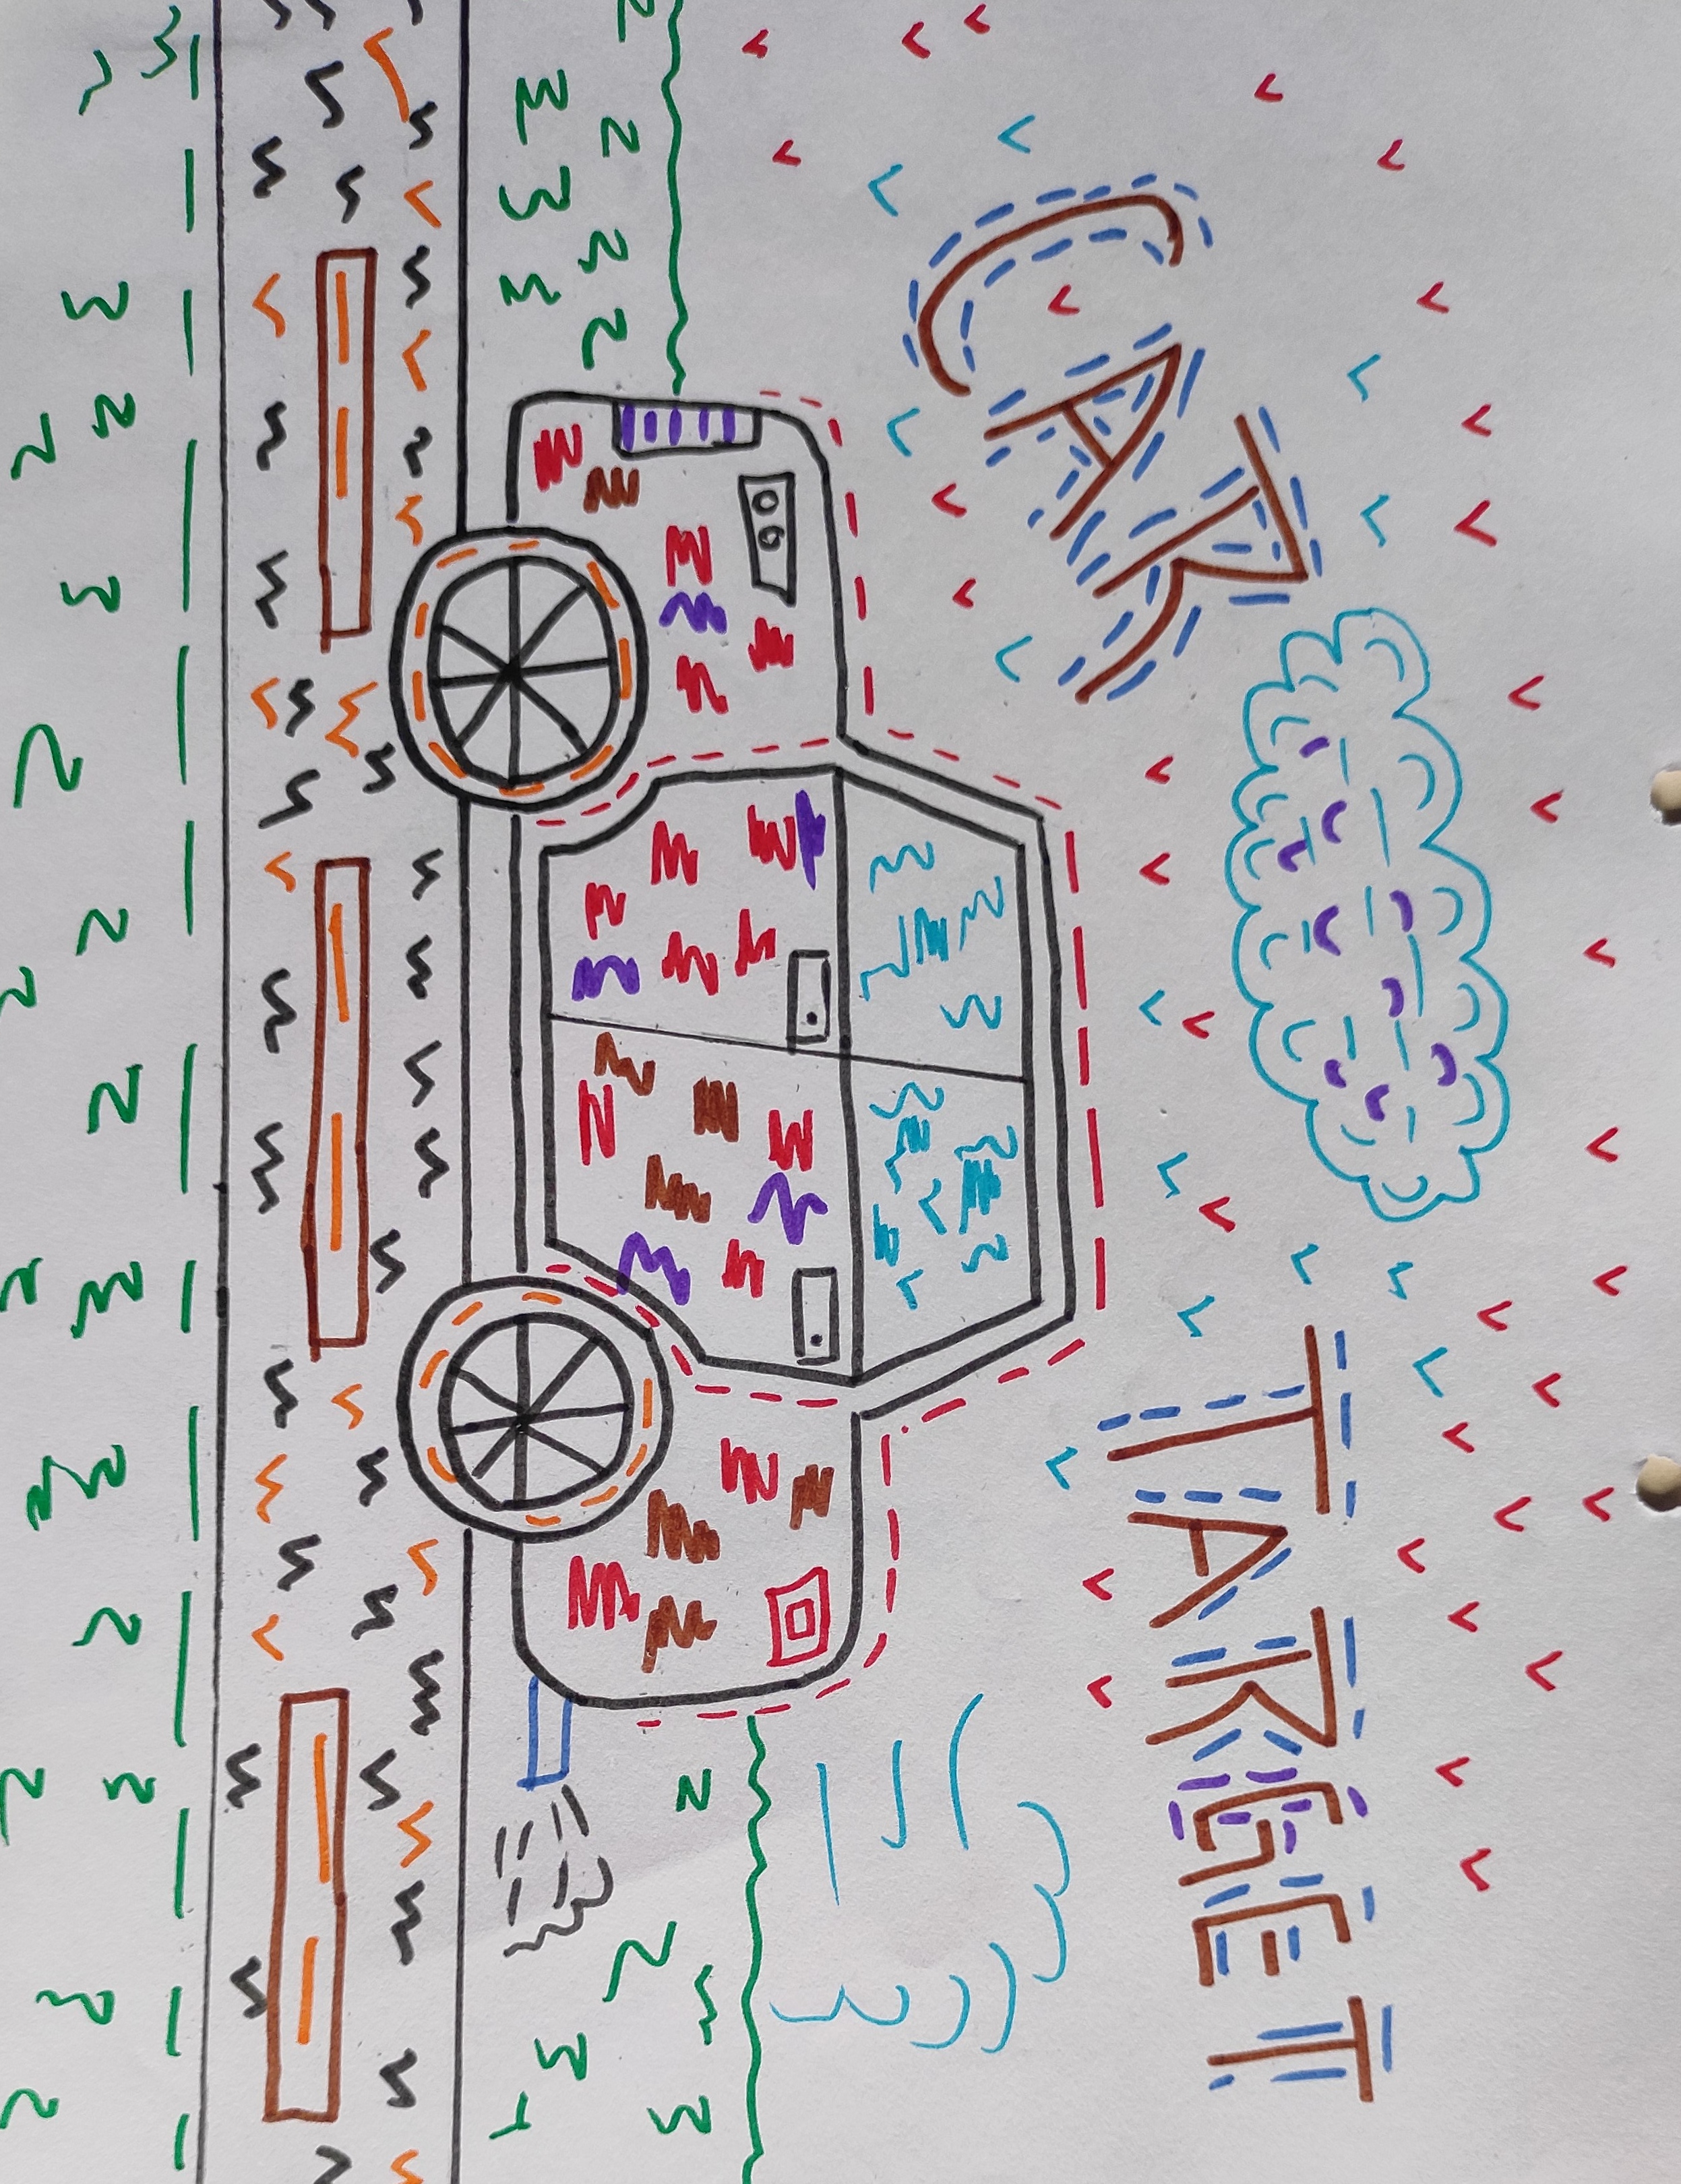 CAR
TARGET